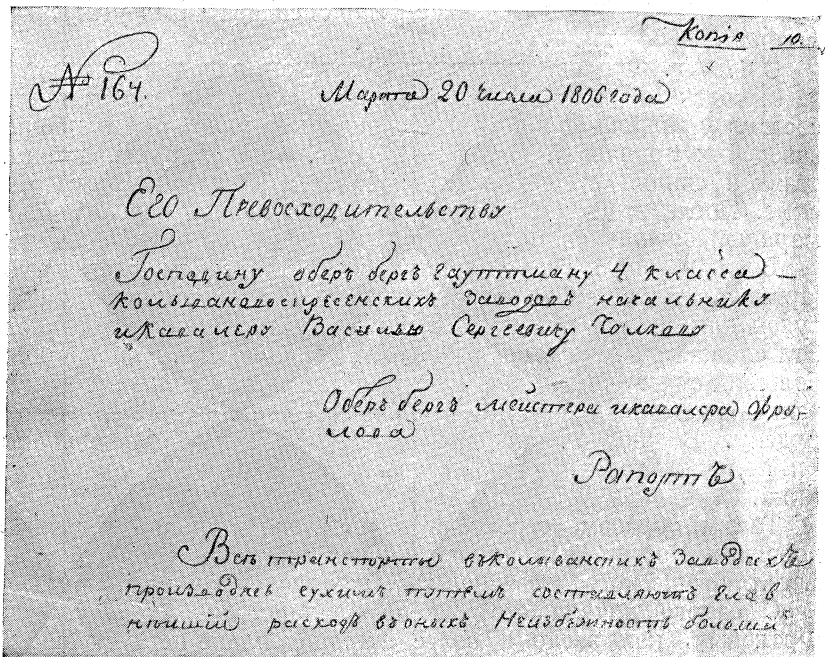 Копія 10.
№ 164.
Марта 20 числа 1806 года
Его Превосходительству
Господину оберъ бергъ гауптману 4 класса
колывановоскресенскихъ заводовъ начальнику
икавалеру Василью Сергеевичу Чулкову
Оберъ бергъ меистера икавалера Фро-
лова
Рапортъ
Всѣ транспорты въколыванскихъ заводахъ
производясь сухимъ путемъ составляютъ глав
нѣйшій расходъ въоныхъ Неизбѣжность большій